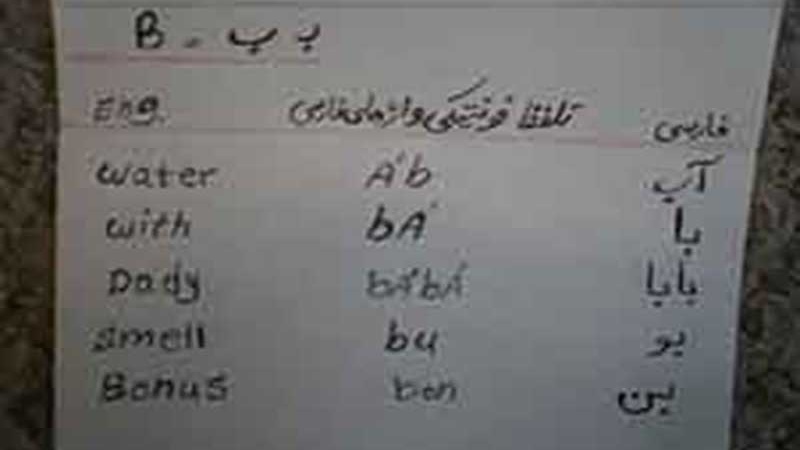 B - ب بـ
Eng. تلفظ فونتیکی واژهای فارسی فارسی
water A'b آب
with bA' با
Dady bA'bA' بابا
smell bu بو
Bonus bon بن